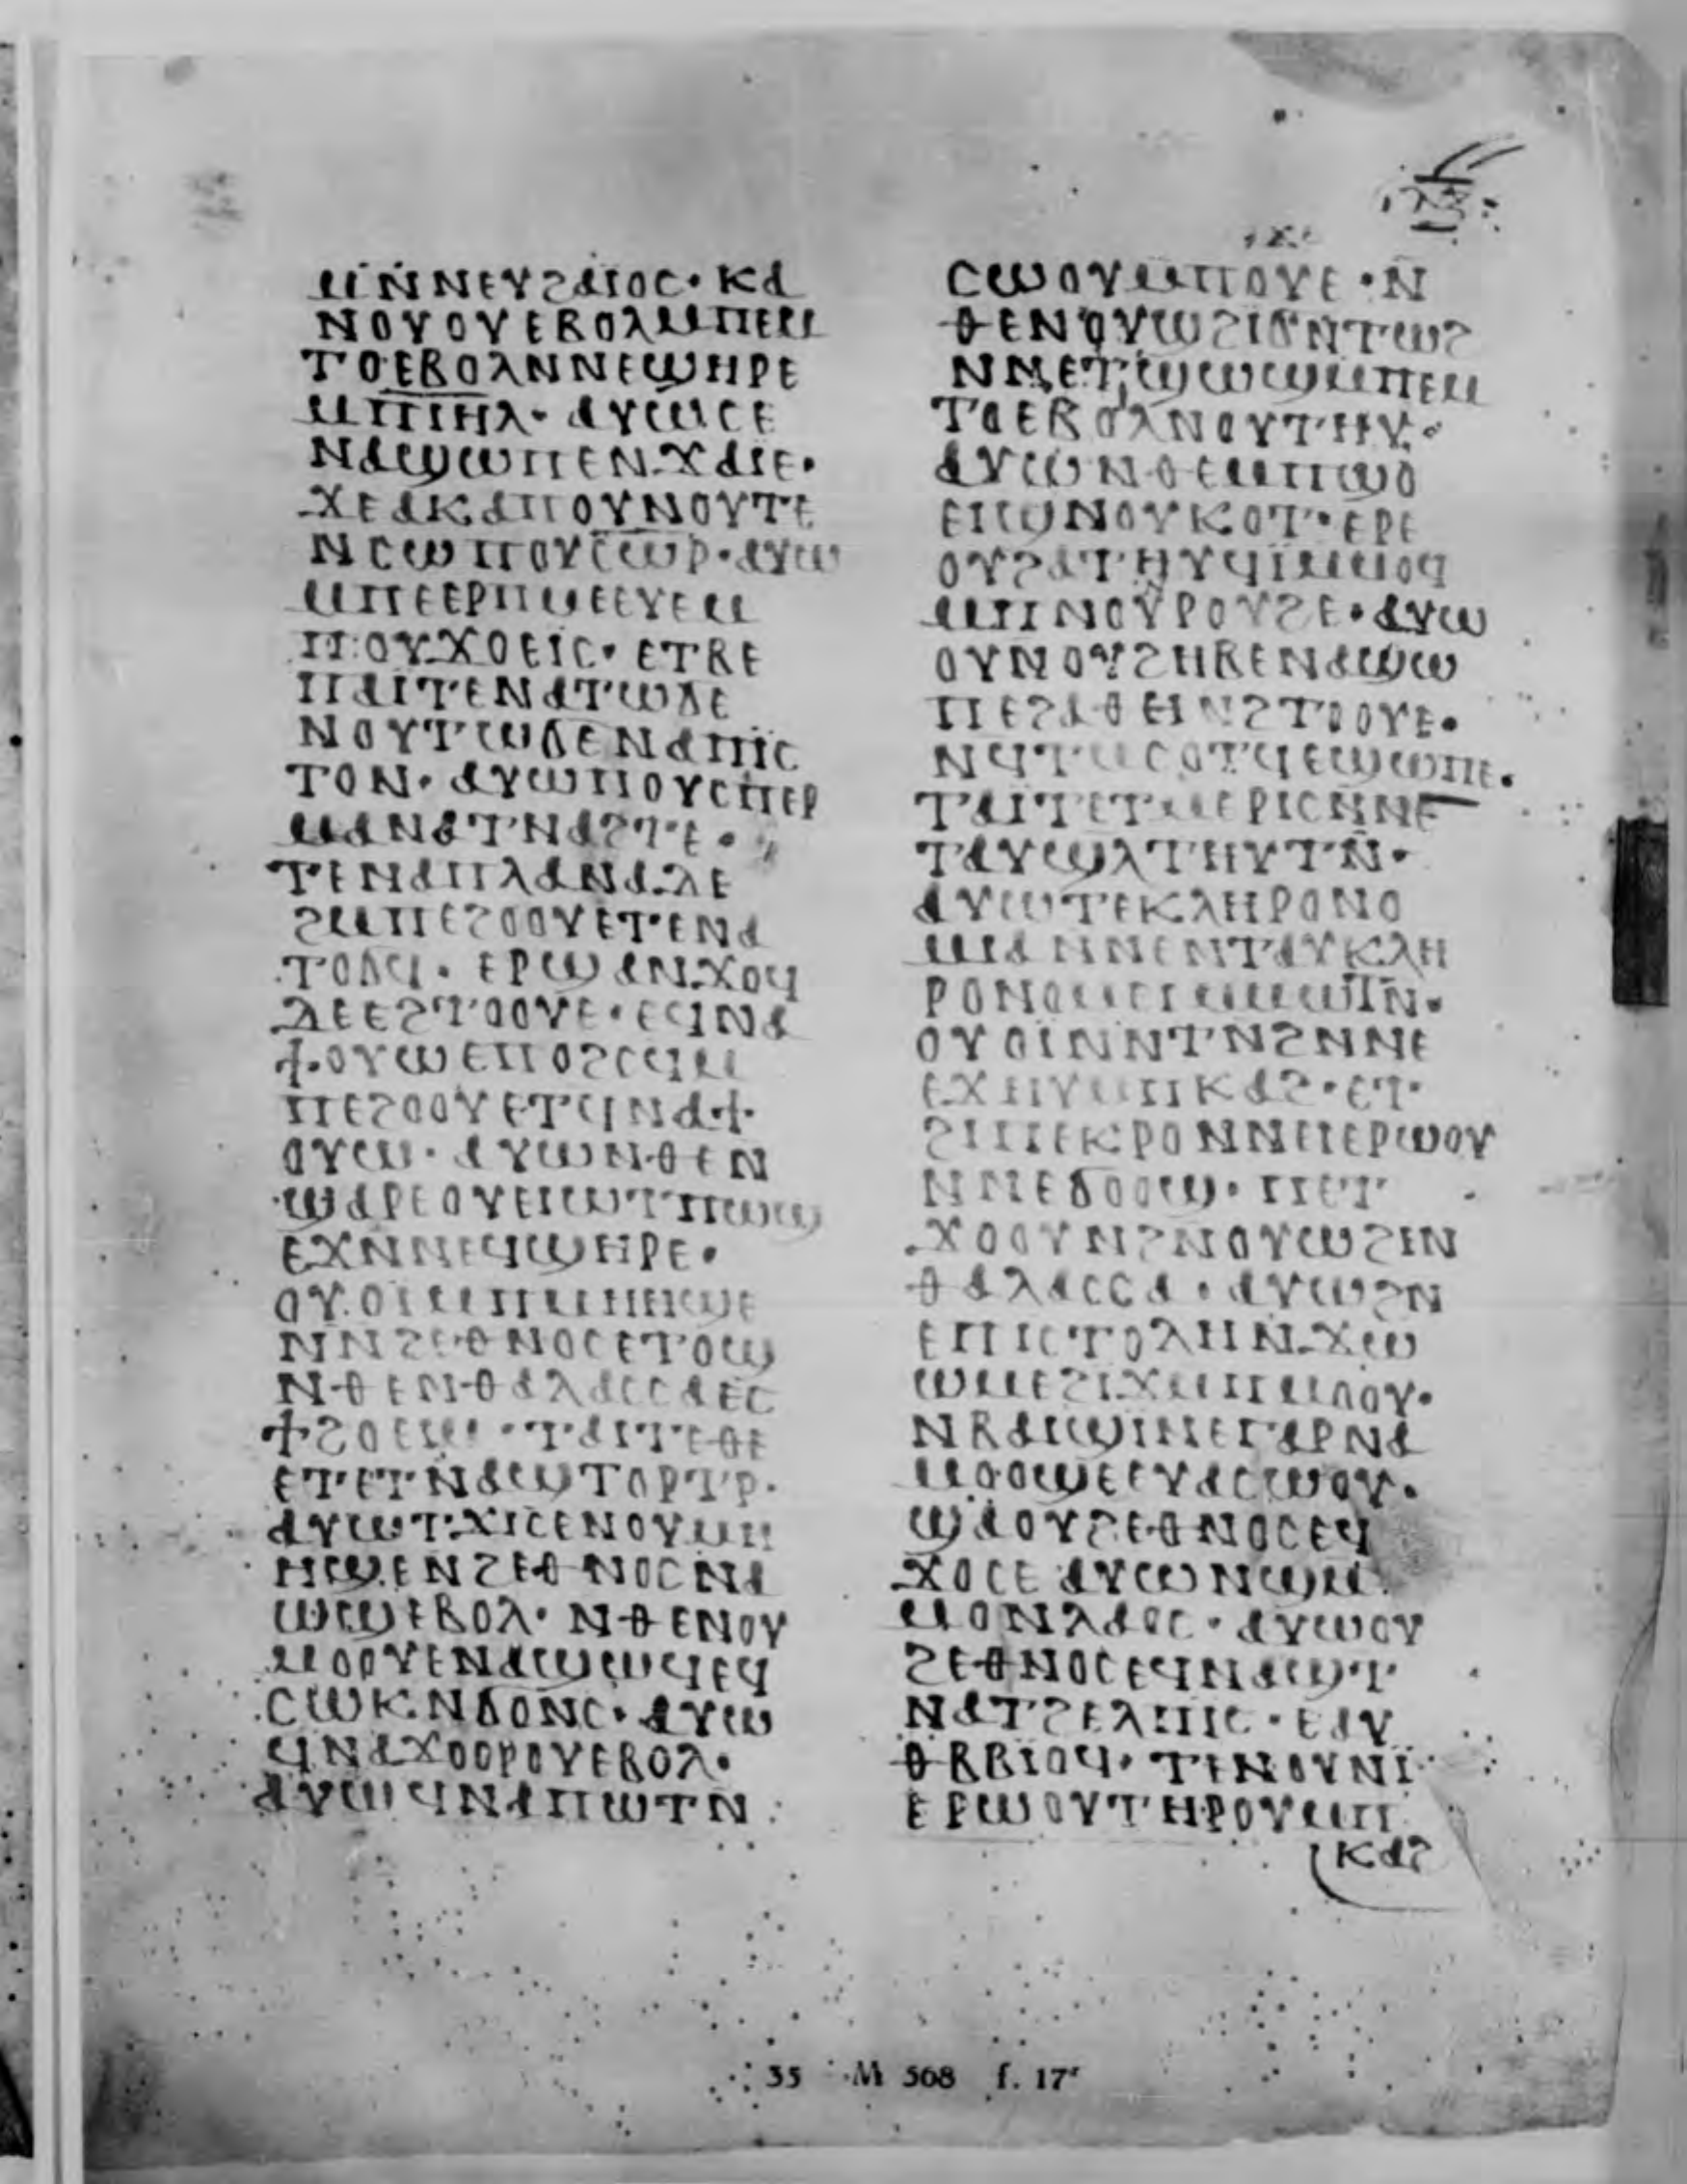 ⲙⲛⲛⲉⲩϩⲁⲓⲟⲥ· ⲕⲁ
ⲛⲟⲩⲟⲩⲉⲃⲟⲗⲙⲡⲉⲙ
ⲧⲟⲉⲃⲟⲗⲛⲛⲉϣⲏⲣⲉ
ⲙⲡⲓⲏⲗ· ⲁⲩⲱⲥⲉ
ⲛⲁϣⲱⲡⲉⲛϫⲁⲓⲉ·
ϫⲉⲁⲕⲁⲡⲟⲩⲛⲟⲩⲧⲉ
ⲛⲥⲱⲡⲟⲩⲥⲱⲣ· ⲁⲩⲱ
ⲙⲡⲉⲉⲣⲡⲙⲉⲉⲩⲉⲙ
ⲡⲟⲩϫⲟⲉⲓⲥ· ⲉⲧⲃⲉ
ⲡⲁⲓⲧⲉⲛⲁⲧⲱϭⲉ
ⲛⲟⲩⲧⲱϭⲉⲛⲁⲡⲓⲥ
ⲧⲟⲛ· ⲁⲩⲱⲡⲟⲩⲥⲡⲉⲣ
ⲙⲁⲛⲁⲧⲛⲁϩⲧⲉ·
ⲧⲉⲛⲁⲡⲗⲁⲛⲁⲇⲉ
ϩⲙⲡⲉϩⲟⲟⲩⲉⲧⲉⲛⲁ
ⲧⲟϭϥ· ⲉⲣϣⲁⲛϫⲟϥ
ⲇⲉⲉϩⲧⲟⲟⲩⲉ· ⲉϥⲛⲁ
ϯⲟⲩⲱⲉⲡⲟϩⲥϥⲙ
ⲡⲉϩⲟⲟⲩⲉⲧϥⲛⲁϯ
ⲟⲩⲱ· ⲁⲩⲱⲛⲑⲉⲛ
ϣⲁⲣⲉⲟⲩⲉⲓⲱⲧⲡⲱϣ
ⲉϫⲛⲛⲉϥϣⲏⲣⲉ·
ⲟⲩⲟⲓⲙⲡⲙⲏⲏϣⲉ
ⲛⲛϩⲉⲑⲛⲟⲥⲉⲧⲟϣ
ⲛⲑⲉⲛⲑⲁⲗⲁⲥⲥⲁⲉⲥ
ϯϩⲟⲉⲓⲙ· ⲧⲁⲓⲧⲉⲑⲉ
ⲉⲧⲉⲧⲛⲁϣⲧⲟⲣⲧⲣ·
ⲁⲩⲱⲧϫⲓⲥⲉⲛⲟⲩⲙⲏ
ⲏϣⲉⲛϩⲉⲑⲛⲟⲥⲛⲁ
ⲱϣⲉⲃⲟⲗ· ⲛⲑⲉⲛⲟⲩ
ⲙⲟⲟⲩⲉⲛⲁϣⲱϥⲉϥ
ⲥⲱⲕⲛϭⲟⲛⲥ· ⲁⲩⲱ
ϥⲛⲁϫⲟⲟⲣⲟⲩⲉⲃⲟⲗ·
ⲁⲩⲱϥⲛⲁⲡⲱⲧⲛ
ⲥⲱⲟⲩⲙⲡⲟⲩⲉ· ⲛ
ⲑⲉⲛⲟⲩⲱϩⲓϭⲛⲧⲱϩ
ⲛⲛⲉⲧϣⲱϣⲙⲡⲉⲙ
ⲧⲟⲉⲃⲟⲗⲛⲟⲩⲧⲏⲩ·
ⲁⲩⲱⲛⲑⲉⲙⲡϣⲟ
ⲉⲓϣⲛⲟⲩⲕⲟⲧ· ⲉⲣⲉ
ⲟⲩϩⲁⲧⲏⲩϥⲓⲙⲙⲟϥ
ⲙⲡⲛⲟⲩⲣⲟⲩϩⲉ· ⲁⲩⲱ
ⲟⲩⲛⲟⲩϩⲏⲃⲉⲛⲁϣⲱ
ⲡⲉϩⲁⲑⲏⲛϩⲧⲟⲟⲩⲉ·
ⲛϥⲧⲙⲥⲟⲧϥⲉϣⲱⲡⲉ·
ⲧⲁⲓⲧⲉⲧⲙⲉⲣⲓⲥⲛⲛⲉ
ⲧⲁⲩϣⲗⲧⲏⲩⲧⲛ·
ⲁⲩⲱⲧⲉⲕⲗⲏⲣⲟⲛⲟ
ⲙⲓⲁⲛⲛⲉⲛⲧⲁⲩⲕⲗⲏ
ⲣⲟⲛⲟⲙⲉⲓⲙⲙⲱⲧⲛ·
ⲟⲩⲟⲓⲛⲛⲧⲛϩⲛⲛⲉ
ⲉϫⲏⲩⲙⲡⲕⲁϩ· ⲉⲧ
ϩⲓⲡⲉⲕⲣⲟⲛⲛⲉⲓⲉⲣⲱⲟⲩ
ⲛⲛⲉϭⲟⲟϣ· ⲡⲉⲧ
ϫⲟⲟⲩⲛϩⲛⲟⲩⲱϩⲓⲛ
ⲑⲁⲗⲁⲥⲥⲁ· ⲁⲩⲱϩⲛ
ⲉⲡⲓⲥⲧⲟⲗⲏⲛϫⲱ
ⲱⲙⲉϩⲓϫⲙⲡⲙⲟⲟⲩ·
ⲛⲃⲁⲓϣⲓⲛⲉⲅⲁⲣⲛⲁ
ⲙⲟⲟϣⲉⲉⲩⲁⲥⲱⲟⲩ·
ϣⲁⲟⲩϩⲉⲑⲛⲟⲥⲉϥ
ϫⲟⲥⲉⲁⲩⲱⲛϣⲙ
ⲙⲟⲛⲗⲁⲟⲥ· ⲁⲩⲱⲟⲩ
ϩⲉⲑⲛⲟⲥⲉϥⲛⲁϣⲧ
ⲛⲁⲧϩⲉⲗⲡⲓⲥ· ⲉⲁⲩ
ⲑⲃⲃⲓⲟϥ· ⲧⲉⲛⲟⲩⲛⲓ
ⲉⲣⲱⲟⲩⲧⲏⲣⲟⲩⲙⲡ
ⲕⲁϩ
35 M 568 f. 17ʳ